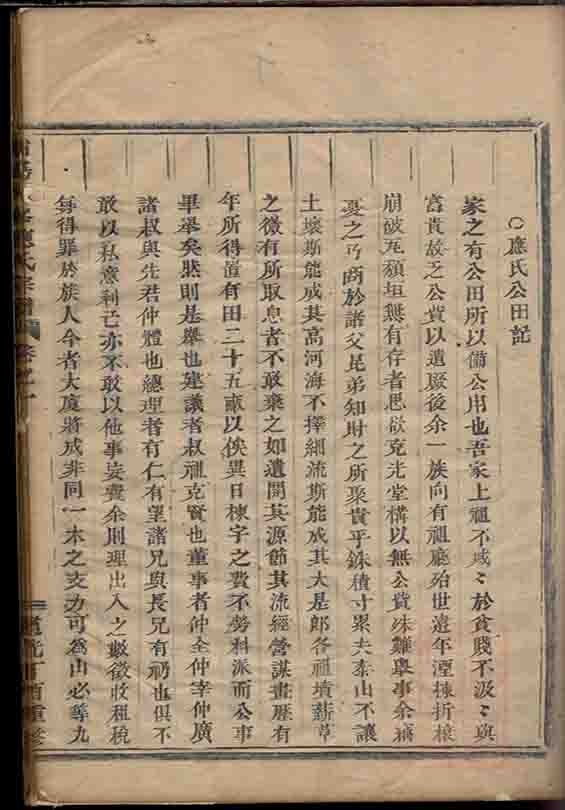 ○應氏公田記
家之有公田所以備公用也吾家上祖不慼〻於貧賤不汲〻與
富貴故之公貲以遺厥後余一族向有祖廳殆世遠年湮棟折榱
崩破瓦頹垣無有存者思欲克光堂構以無公貲殊難舉事余竊
憂之乃商於諸父昆弟知財之所聚貴乎銖積寸累夫泰山不讓
土壤斯能成其高河海不擇細流斯能成其大是郎各祖墳薪草
之微有所取息者不敢棄之如遺開其源節其流經營謀畫歷有
年所得置有田二十五畝以俟異日棟宇之費不勞科派而公事
畢舉矣然則是舉也建議者叔祖克賢也董事者仲全仲幸仲廣
諸叔與先君仲體也總理者有仁有望諸兄與長兄有礽也俱不
敢以私意利己亦不敢以他事妄費余則理出入之數徵收租稅
每得罪於族人今者大廈將成非同一木之支力可為山必等九
應氏宗譜
道光丁酉重修